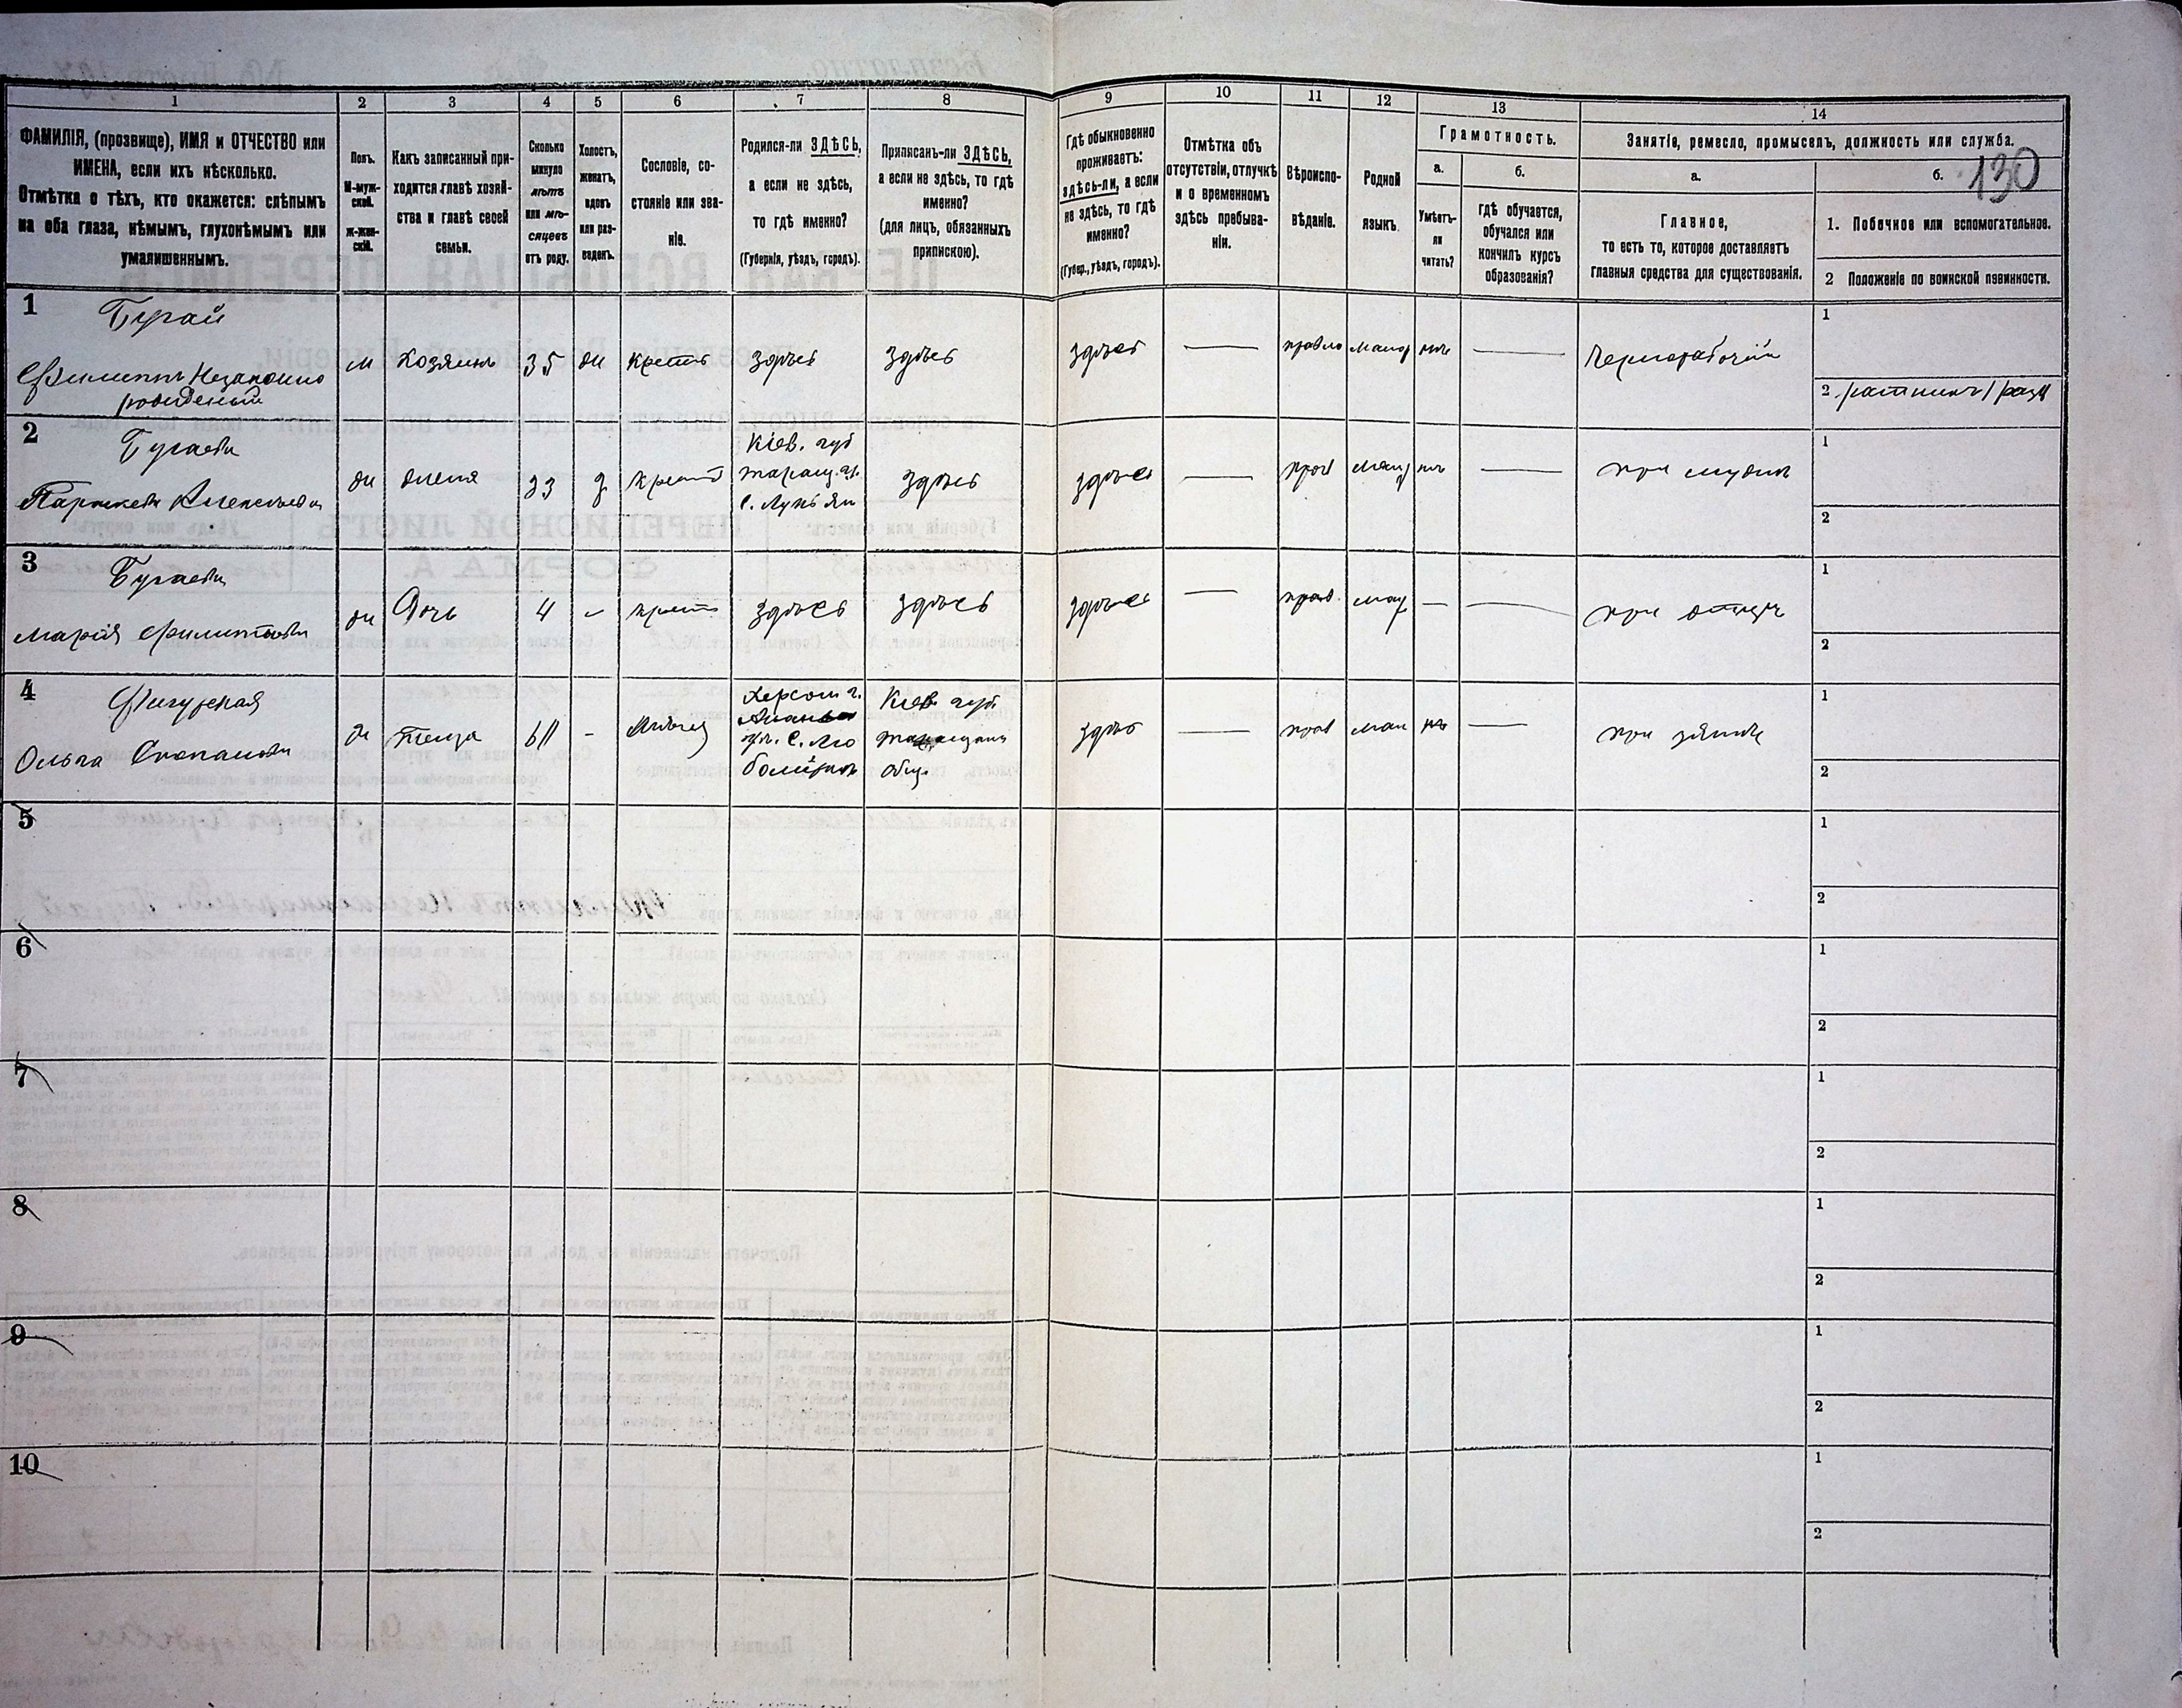 1 2 3 4 5 6 7 8 9 10 11 12 13 14
ФАМИЛІЯ, (прозвище), ИМЯ и ОТЧЕСТВО или
ИМЕНА, если ихъ нѣсколько.
Отмѣтка о тѣхъ, кто окажется: слѣпымъ
на оба глаза, нѣмымъ, глухонѣмымъ или
умалишеннымъ.
Полъ.
М-муж-
ской.
ж-жен-
скій.
Какъ записанный при-
ходится главѣ хозяй-
ства и главѣ своей
семьи.
Сколько
минуло
лѣтъ
или мѣ-
сяцевъ
отъ роду.
Холостъ,
женатъ,
вдовъ
или раз-
веденъ.
Сословіе, со-
стояніе или зва-
ніе.
Родился-ли ЗДѢСЬ,
а если не здѣсь,
то гдѣ именно?
(Губернія, уѣздъ, городъ).
Приписанъ-ли ЗДѢСЬ,
а если не здѣсь, то гдѣ
именно?
(для лицъ, обязанныхъ
припискою).
Гдѣ обыкновенно
проживаетъ:
здѣсь-ли, а если
не здѣсь, то гдѣ
именно?
(Губер., уѣздъ, городъ).
Отмѣтка объ
отсутствіи, отлучкѣ
и о временномъ
здѣсь пребыва-
ніи.
Вѣроиспо-
вѣданіе.
Родной
языкъ.
Грамотность.
а.
Умѣетъ-
ли
читать?
б.
гдѣ обучается,
обучался или
кончилъ курсъ
образованія?
Занятіе, ремесло, промыселъ, должность или служба.
130
а.
Главное,
то есть то, которое доставляетъ
главныя средства для существованія.
б.
1. Побочное или вспомогательное.
2 Положеніе по воинской повинности.
1
Бугай
Филиппъ Незаконно
рожденый
м Хозяинъ 35 ж крест здѣсь здѣсь здѣсь — малор нѣт — Чернорабочій
1
2 ратникъ
2
Бугаева
Параскева Алексѣева
ж жена 33 з крест
Кіев. губ
Таращ. у.
здѣсь здѣсь — прав — при мужѣ
1
2
3
Бугаева
Марія Филиппова
ж Дочь 4 - крест здѣсь здѣсь здѣсь — прав. — — при отцѣ
1
2
4
Фигурская
Ольга Степанова
ж Теща -
Херсон г.
Кіев губ
общ.
здѣс — прав — при зятѣ
1
2
5
1
2
6
1
2
7
1
2
8
1
2
9
1
2
10
1
2